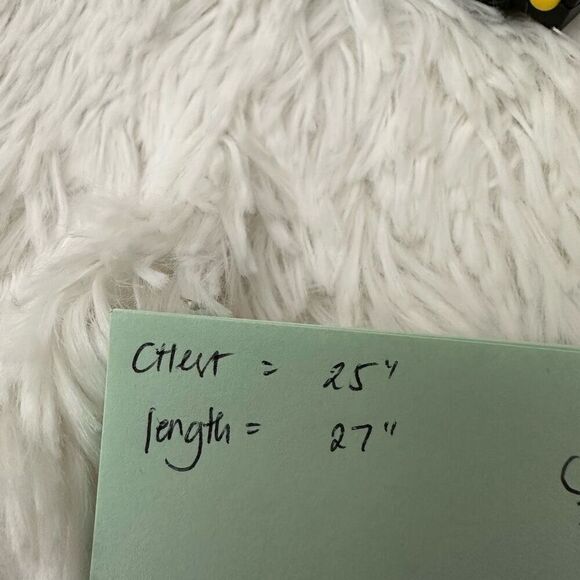 Chest = 25"
length = 27"